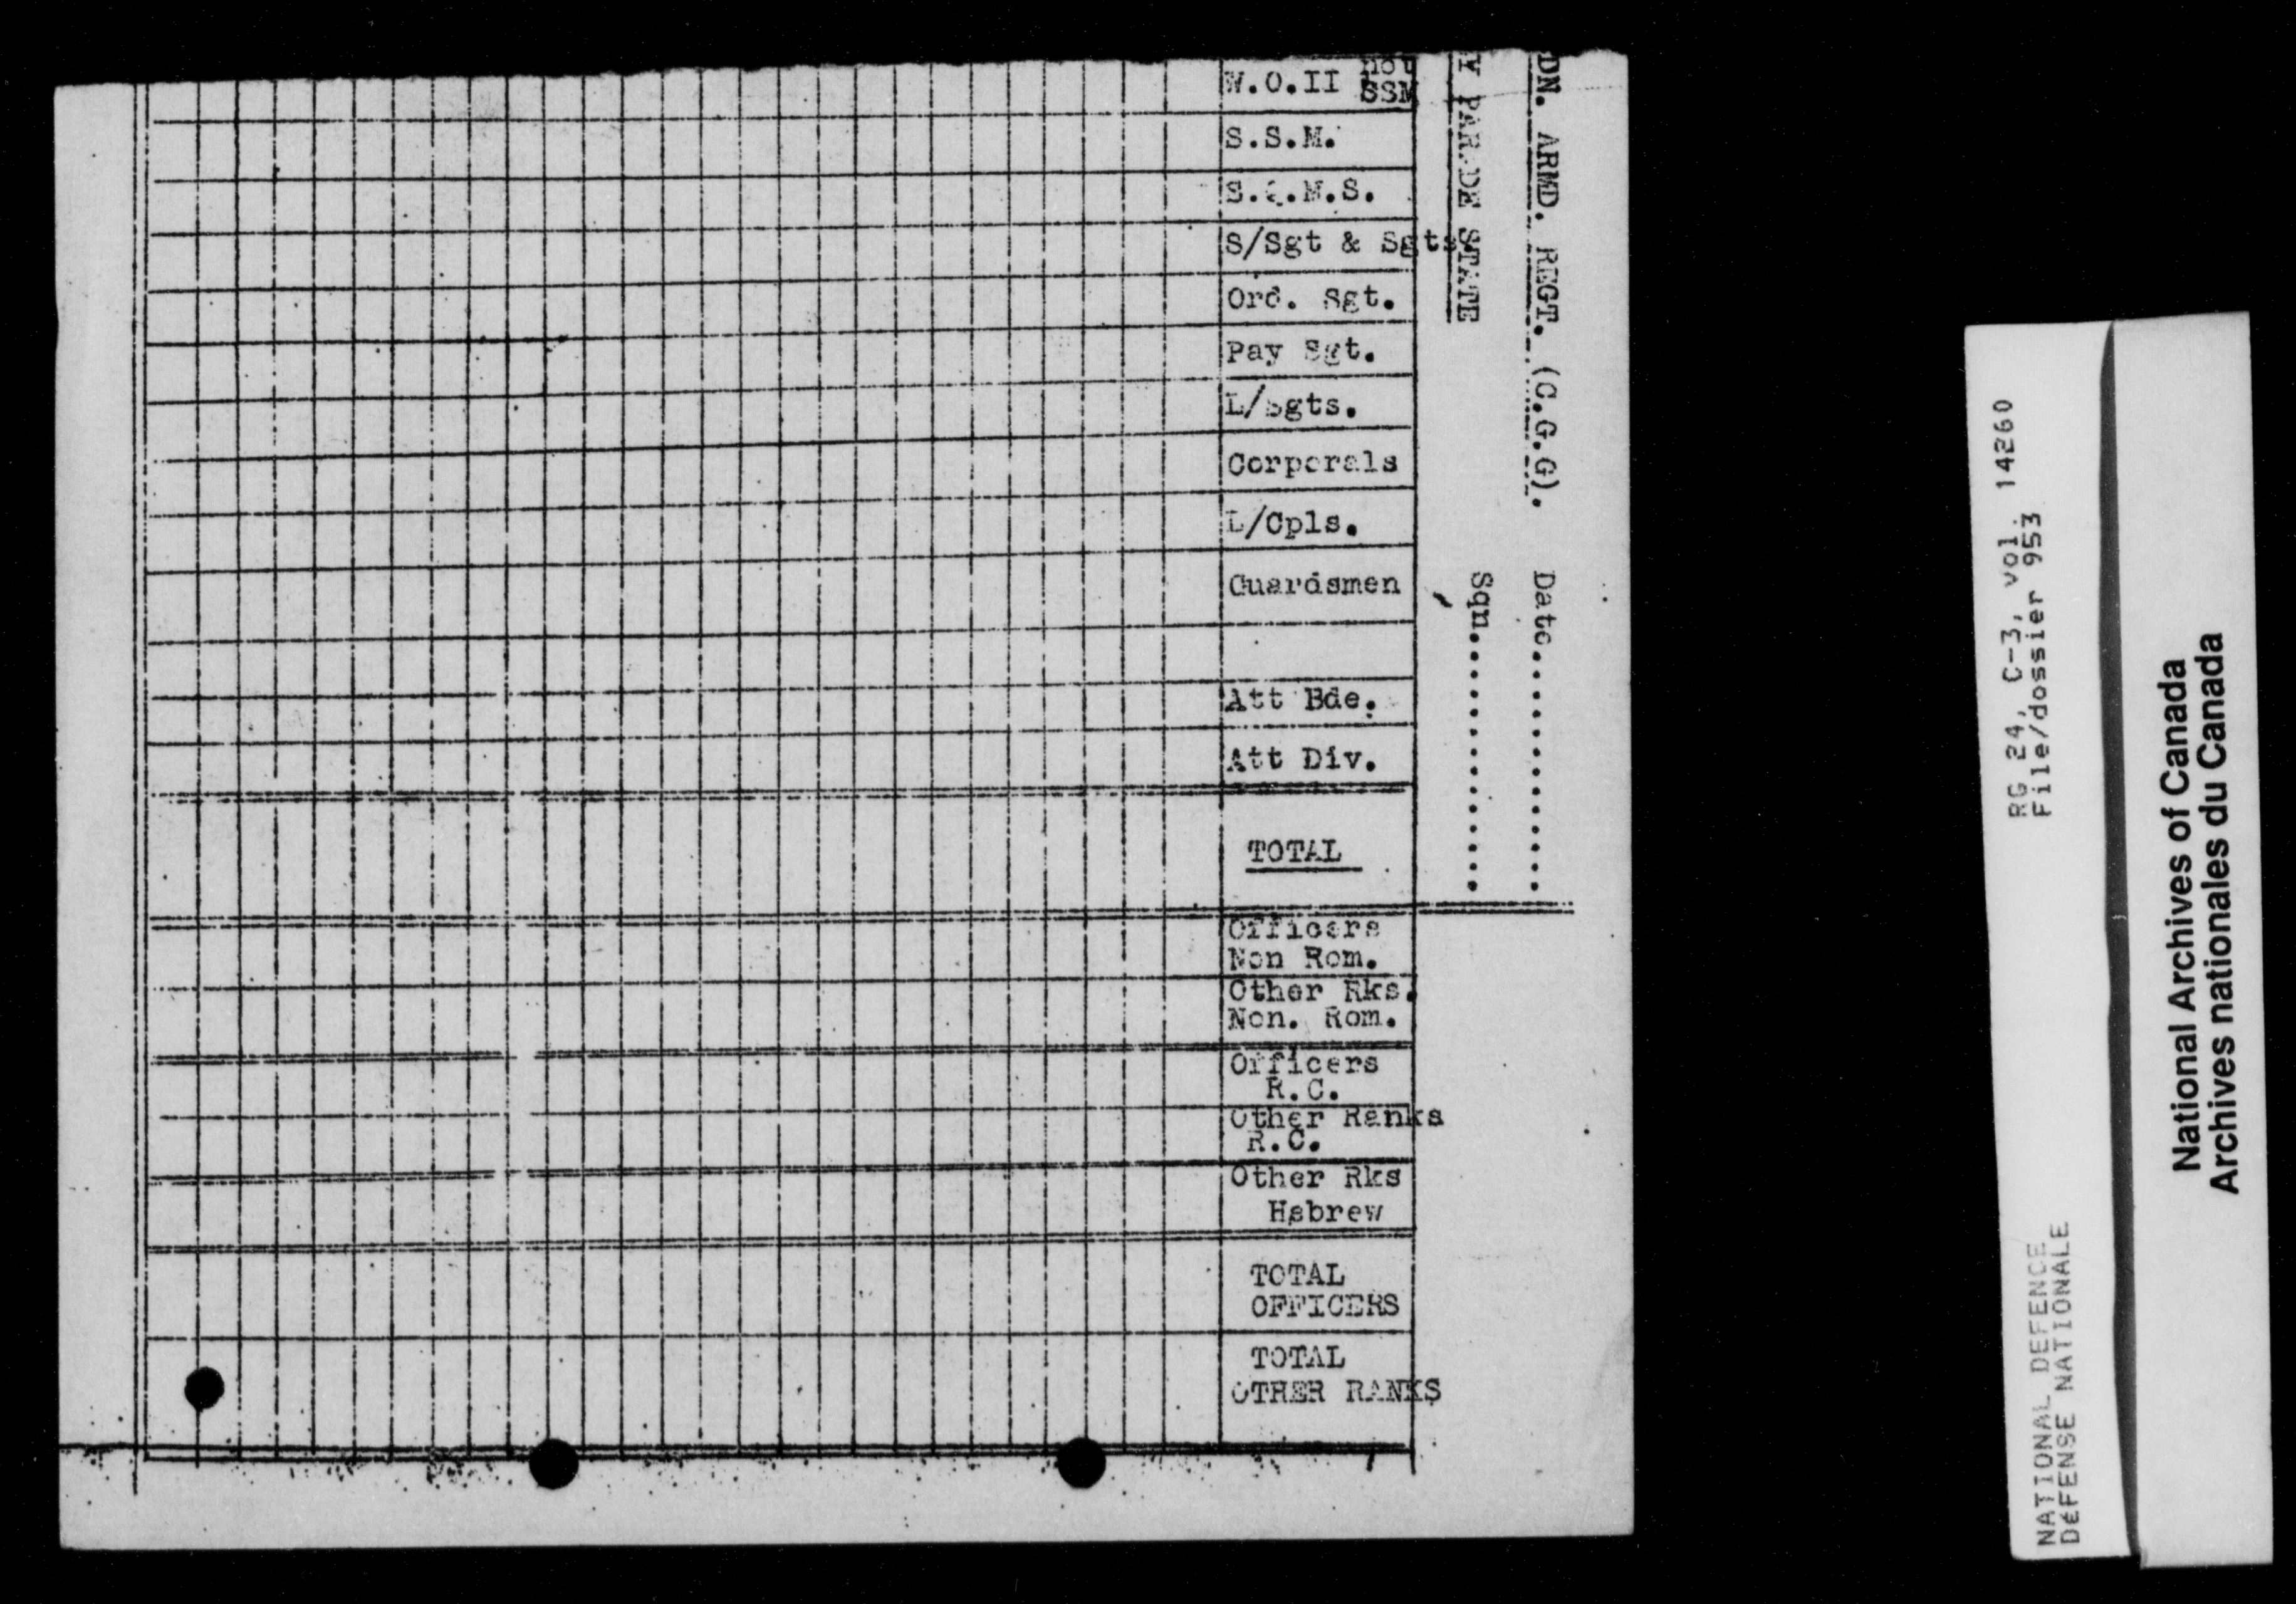 DN. ARMD. REGT. (C.G.G). Date..............
Y PARADE STATE Sqn..............
W.O.II not SSM
S.S.M.
S.Q.M.S.
S/Sgt & Sgts
Ord. Sgt.
Pay Sgt.
L/Sgts.
Corporals
L/Cpls.
Guardsmen
Att Bde.
Att Div.
TOTAL
Officers
Non Rom.
Other Rks.
Non. Rom.
Officers
R.C.
Other Ranks
R.C.
Other Rks
Hebrew
TOTAL
OFFICERS
TOTAL
OTHER RANKS
NATIONAL DEFENCE RG 24, C-3, vol. 14260
DEFENSE NATIONALE File/dossier 953
National Archives of Canada
Archives nationales du Canada